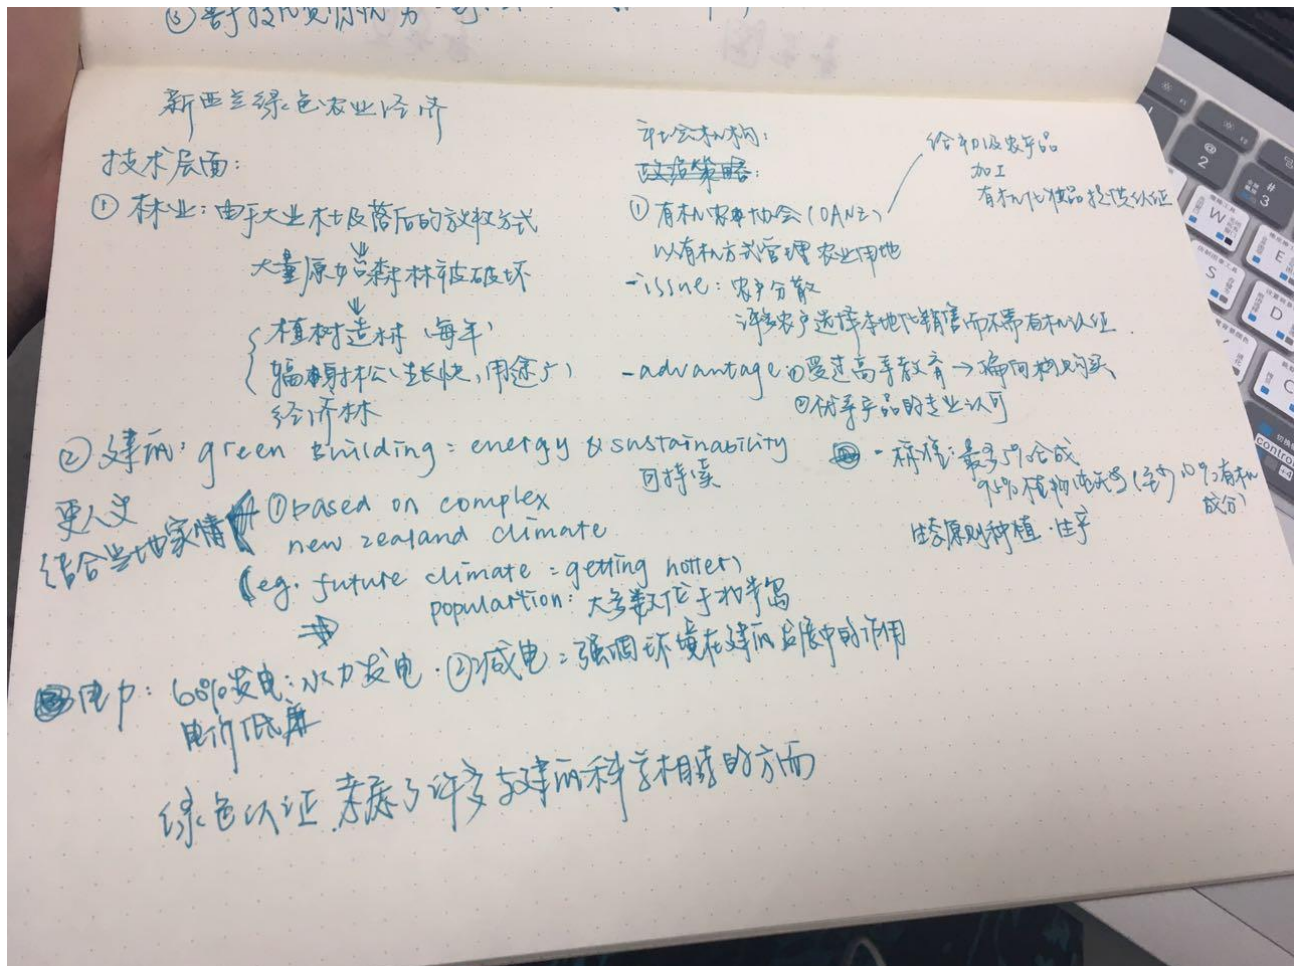 新西兰绿色农业经济
技术层面:
① 林业: 由于大业木及落后的放牧方式
大量原始森林被破坏
植树造林 (每年)
辐射松 (生长快, 用途广)
经济林
② 建筑: green Building: energy & sustainability
可持续
更人文
结合当地家情
①based on complex
new zealand climate
(eg. future climate = getting hotter)
populartion: 大多数位于北半岛
电力: 60%发电: 水力发电. ②减电: 强调环境在建筑发展中的作用
电价低廉
绿色认证, 考虑了许多与建筑科学相关的方面
社会机构:
政治策略:
① 有机农业协会 (OANZ)
给初级农产品
加工
有机化妆品提供认证
以有机方式管理农业用地
-issue: 农户分散
许多农户选择本地化销售而不需有机认证.
-advantage: ①受过高等教育 → 偏向构购买
②优等产品的专业认可
- 标准: 最多5%合成
95%植物纯天然 (至少10%有机
成分)
生态原则种植·生产